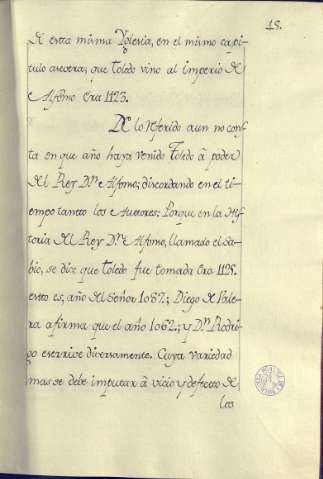 18.
de esta misma Yglesia, en el mismo capi-
tulo asevera, que Toledo vino al imperio de
Alfonso Era 1123.
De lo referido aun no cons-
ta en que año haya venido Toledo à poder
del Rey Dn. Alfonso; discordando en el ti-
empo tantos los Autores: Porque en la His-
toria del Rey Dn. Alfonso, llamado el Sa-
bio, se dize que Toledo fue tomada Era 1125.
esto es, año del Señor 1087.; Diego de Vale-
ra afirma que el año 1062.; y Dn. Rodri-
go escrive diversamente. Cuya variedad
mas se debe imputar à vicio y defecto de
los